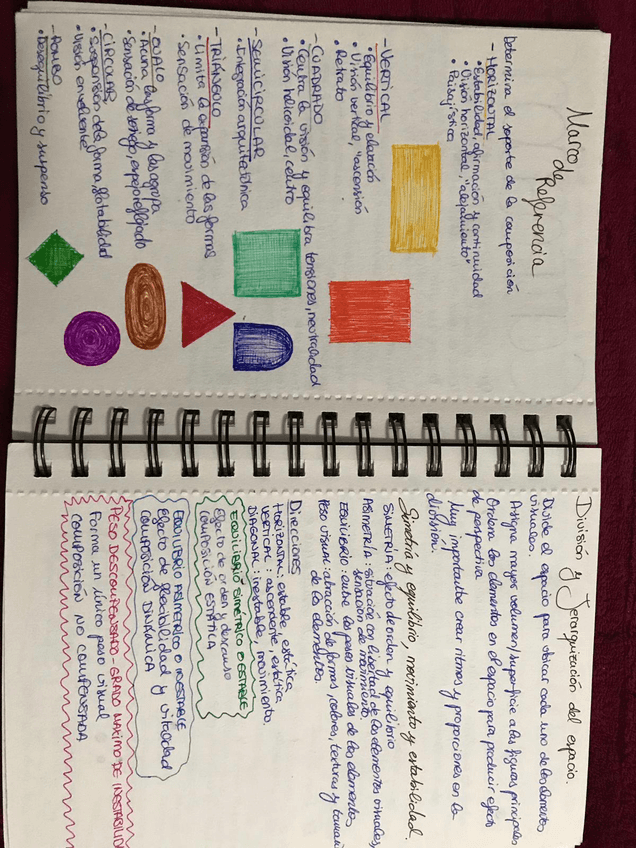 Marco
de Referencia
Determina el soporte de la composición
- HORIZONTAL
• Estabilidad, afirmación y continuidad
• Visión horizontal, "alejamiento"
• Paisajística
- VERTICAL
• Equilibrio y elevación
• Visión vertical, "ascensión"
• Retrato
- CUADRADO
• Centra la visión y equilibra tensiones, neutralidad
• Visión helicoidal, centro
- SEMICIRCULAR
• Integración arquitectónica
- TRIÁNGULO
• Limita la expansión de las formas
• Sensación de movimiento
- OVALO
• Acuna las formas y las agrupa
• Sensación de sosiego, espejo reflejado
- CIRCULAR
• Suspensión de la forma, estabilidad
• Visión envolvente
- ROMBO
• Desequilibrio y suspenso
División y Jerarquización del espacio.
Divide el espacio para ubicar cada uno de los elementos
visuales.
Asigna mayor volumen/superficie a las figuras principales
Ordena los elementos en el espacio para producir efecto
de perspectiva
Muy importante crear ritmos y proporciones en la
división.
Simetría y equilibrio, movimiento y estabilidad.
SIMETRÍA: efecto de orden y equilibrio
ASIMETRÍA: situación con libertad de los elementos visuales,
sensación de movimiento
EQUILIBRIO: entre los pesos visuales de los elementos
PESO VISUAL: atracción de formas, colores, texturas y tamaño
de los elementos
Direcciones
HORIZONTAL: estable, estática
VERTICAL: ascendente, estática
DIAGONAL: inestable, movimiento
EQUILIBRIO SIMÉTRICO O ESTABLE
Efecto de orden y descanso
COMPOSICIÓN ESTÁTICA
EQUILIBRIO ASIMÉTRICO O INESTABLE
Efecto de flexibilidad y vitalidad
COMPOSICIÓN DINÁMICA
PESO DESCOMPENSADO - GRADO MAXIMO DE INESTABILIDAD
Forma un único peso visual
COMPOSICIÓN NO COMPENSADA